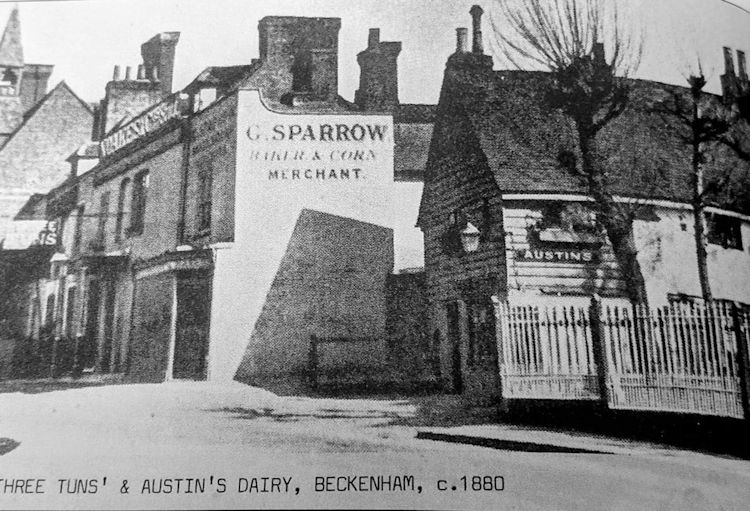 G. SPARROW
BAKER & CORN
MERCHANT.
AUSTIN'S
THREE TUNS' & AUSTIN'S DAIRY, BECKENHAM, c.1880